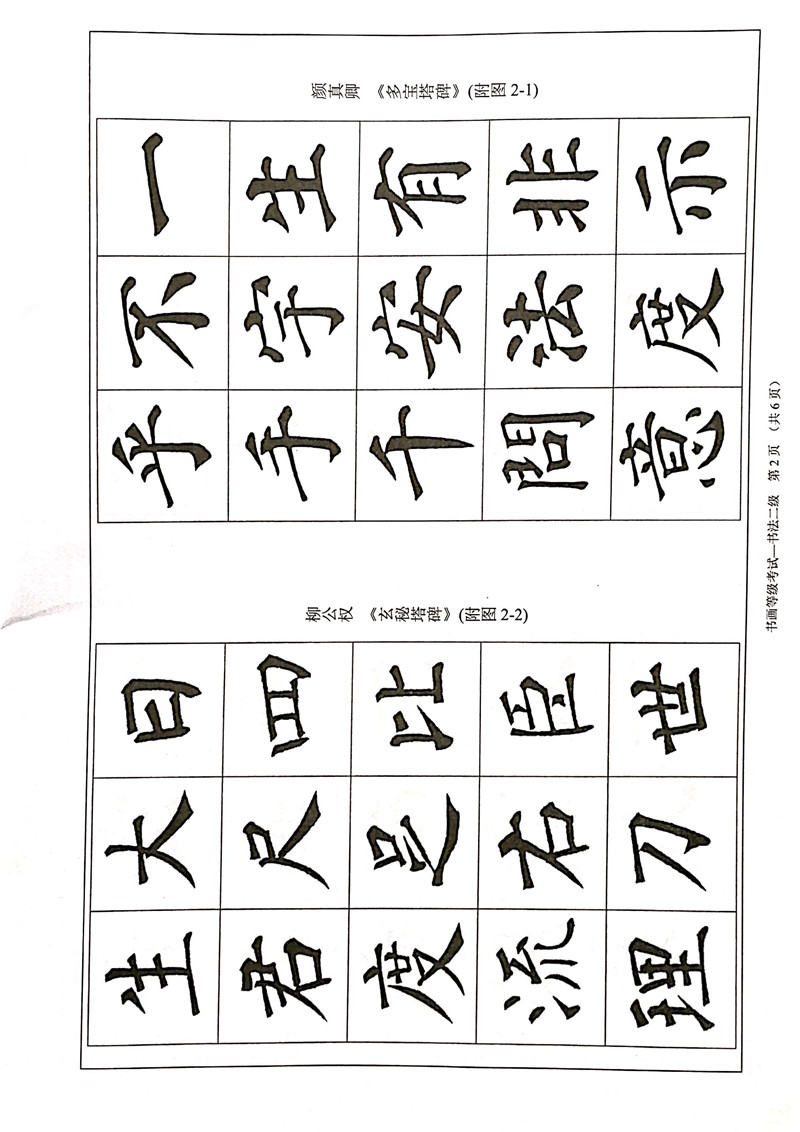 颜真卿 《多宝塔碑》(附图2-1)
一生有非示
不字安法度
乎手千問意
柳公权 《玄秘塔碑》(附图2-2)
日四比臣世
大尺足右刀
生君度流理
书画等级考试—书法二级 第2页 (共6页)